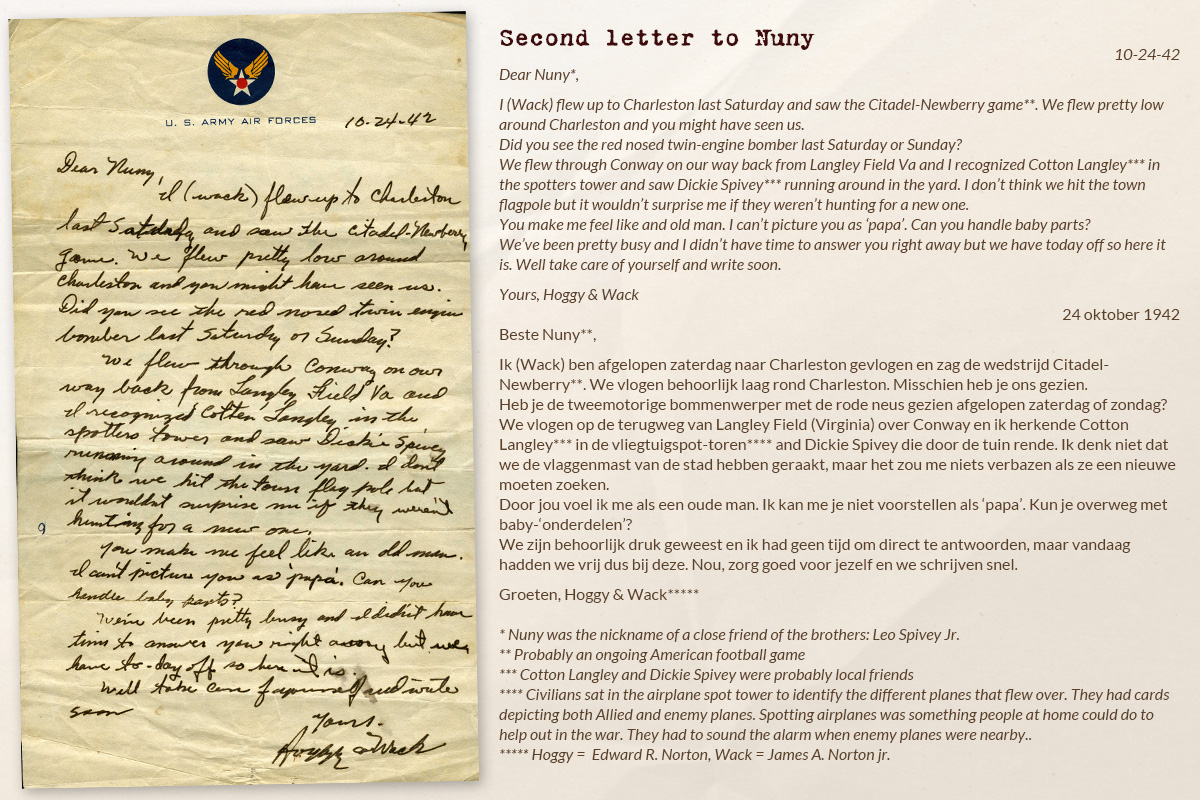 U. S. ARMY AIR FORCES
10-24-42
Dear Nuny,
I (wack) flew up to Charleston
last Satday and saw the Citadel-Newberry
game. We flew pretty low around
Charleston and you might have seen us.
Did you see the red nosed twin engin
bomber last Saturday or Sunday?
We flew through Conway on our
way back from Langley Field Va and
I recognized Cotten Langley in the
spotters tower and saw Dickie Spivey
running around in the yard. I don't
think we hit the town flag pole but
it wouldnt surprise me if they weren't
hunting for a new one.
You make me feel like an old man.
I can't picture you as 'papa'. Can you
handle baby parts?
We've been pretty busy and I didn't have
time to answer you right away but we
have to-day off so here it is.
Well take care of yourself and write
soon
Yours.
Hoggy & Wack
9
Second letter to Nuny
10-24-42
Dear Nuny*,
I (Wack) flew up to Charleston last Saturday and saw the Citadel-Newberry game**. We flew pretty low
around Charleston and you might have seen us.
Did you see the red nosed twin-engine bomber last Saturday or Sunday?
We flew through Conway on our way back from Langley Field Va and I recognized Cotton Langley*** in
the spotters tower and saw Dickie Spivey*** running around in the yard. I don't think we hit the town
flagpole but it wouldn't surprise me if they weren't hunting for a new one.
You make me feel like and old man. I can't picture you as 'papa'. Can you handle baby parts?
We've been pretty busy and I didn't have time to answer you right away but we have today off so here it
is. Well take care of yourself and write soon.
Yours, Hoggy & Wack
24 oktober 1942
Beste Nuny**,
Ik (Wack) ben afgelopen zaterdag naar Charleston gevlogen en zag de wedstrijd Citadel-
Newberry**. We vlogen behoorlijk laag rond Charleston. Misschien heb je ons gezien.
Heb je de tweemotorige bommenwerper met de rode neus gezien afgelopen zaterdag of zondag?
We vlogen op de terugweg van Langley Field (Virginia) over Conway en ik herkende Cotton
Langley*** in de vliegtuigspot-toren**** and Dickie Spivey die door de tuin rende. Ik denk niet dat
we de vlaggenmast van de stad hebben geraakt, maar het zou me niets verbazen als ze een nieuwe
moeten zoeken.
Door jou voel ik me als een oude man. Ik kan me je niet voorstellen als 'papa'. Kun je overweg met
baby-'onderdelen'?
We zijn behoorlijk druk geweest en ik had geen tijd om direct te antwoorden, maar vandaag
hadden we vrij dus bij deze. Nou, zorg goed voor jezelf en we schrijven snel.
Groeten, Hoggy & Wack*****
* Nuny was the nickname of a close friend of the brothers: Leo Spivey Jr.
** Probably an ongoing American football game
*** Cotton Langley and Dickie Spivey were probably local friends
**** Civilians sat in the airplane spot tower to identify the different planes that flew over. They had cards
depicting both Allied and enemy planes. Spotting airplanes was something people at home could do to
help out in the war. They had to sound the alarm when enemy planes were nearby..
***** Hoggy = Edward R. Norton, Wack = James A. Norton jr.